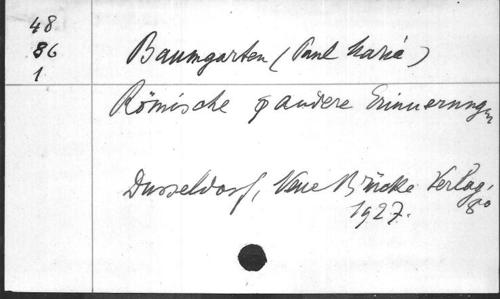 48
86
1
Baumgarten (Paul Maria)
Römische & andere Erinnerungen
Dusseldorf, Neue Brücke Verlag,
80
1927.